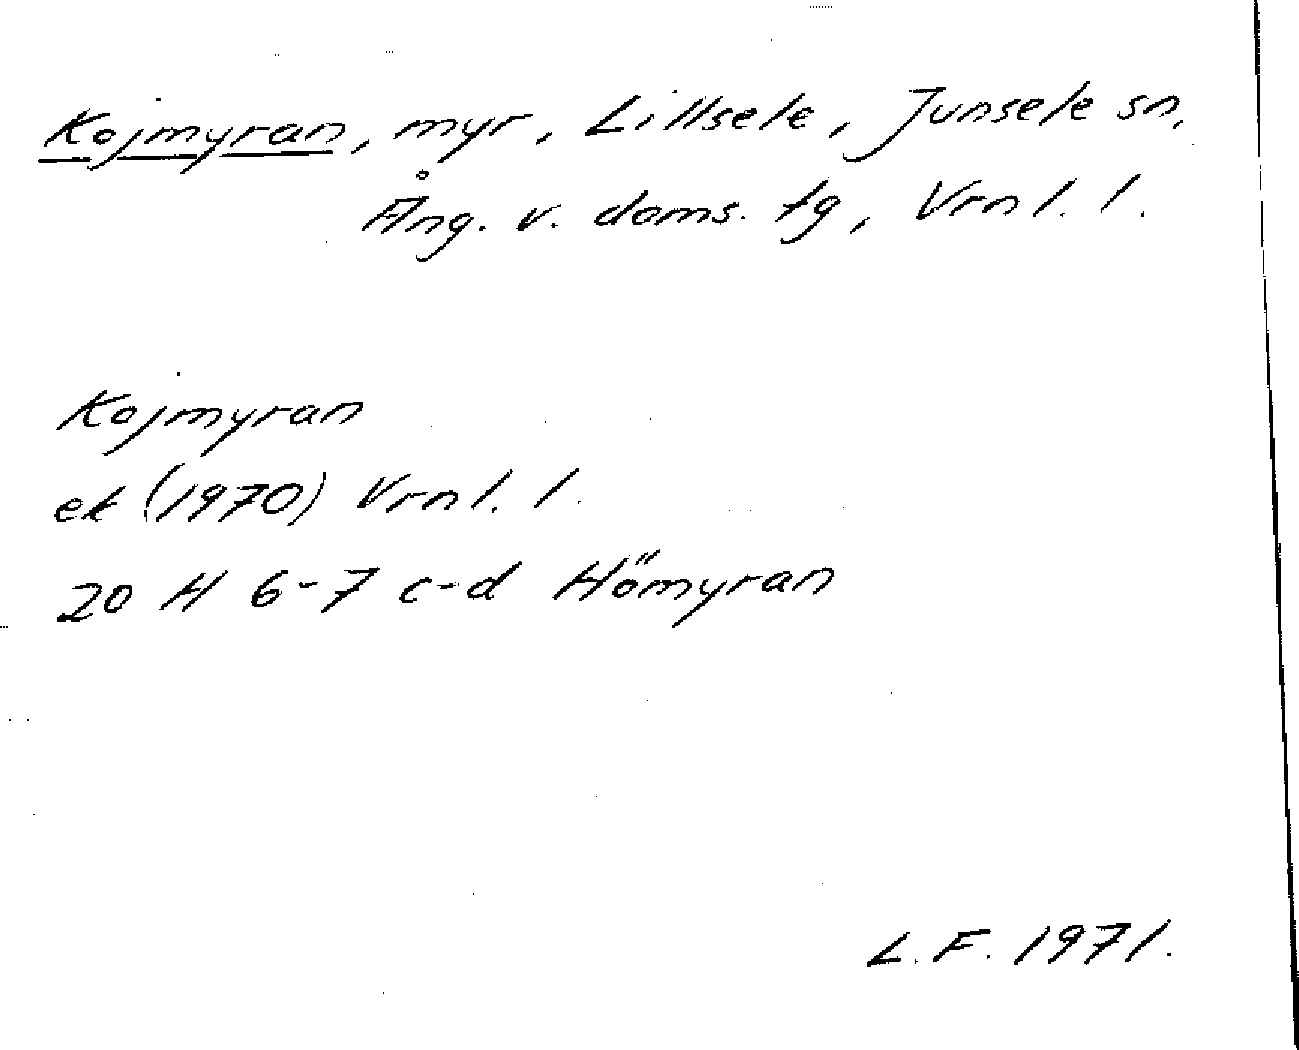 Kojmyran, myr, Lillsele, Junsele sn,
Ång. v. doms. tg, Vrnl. l.
Kojmyran
ek (1970) Vrnl. l.
20 H 6-7 c-d Hömyran
L.F. 1971.